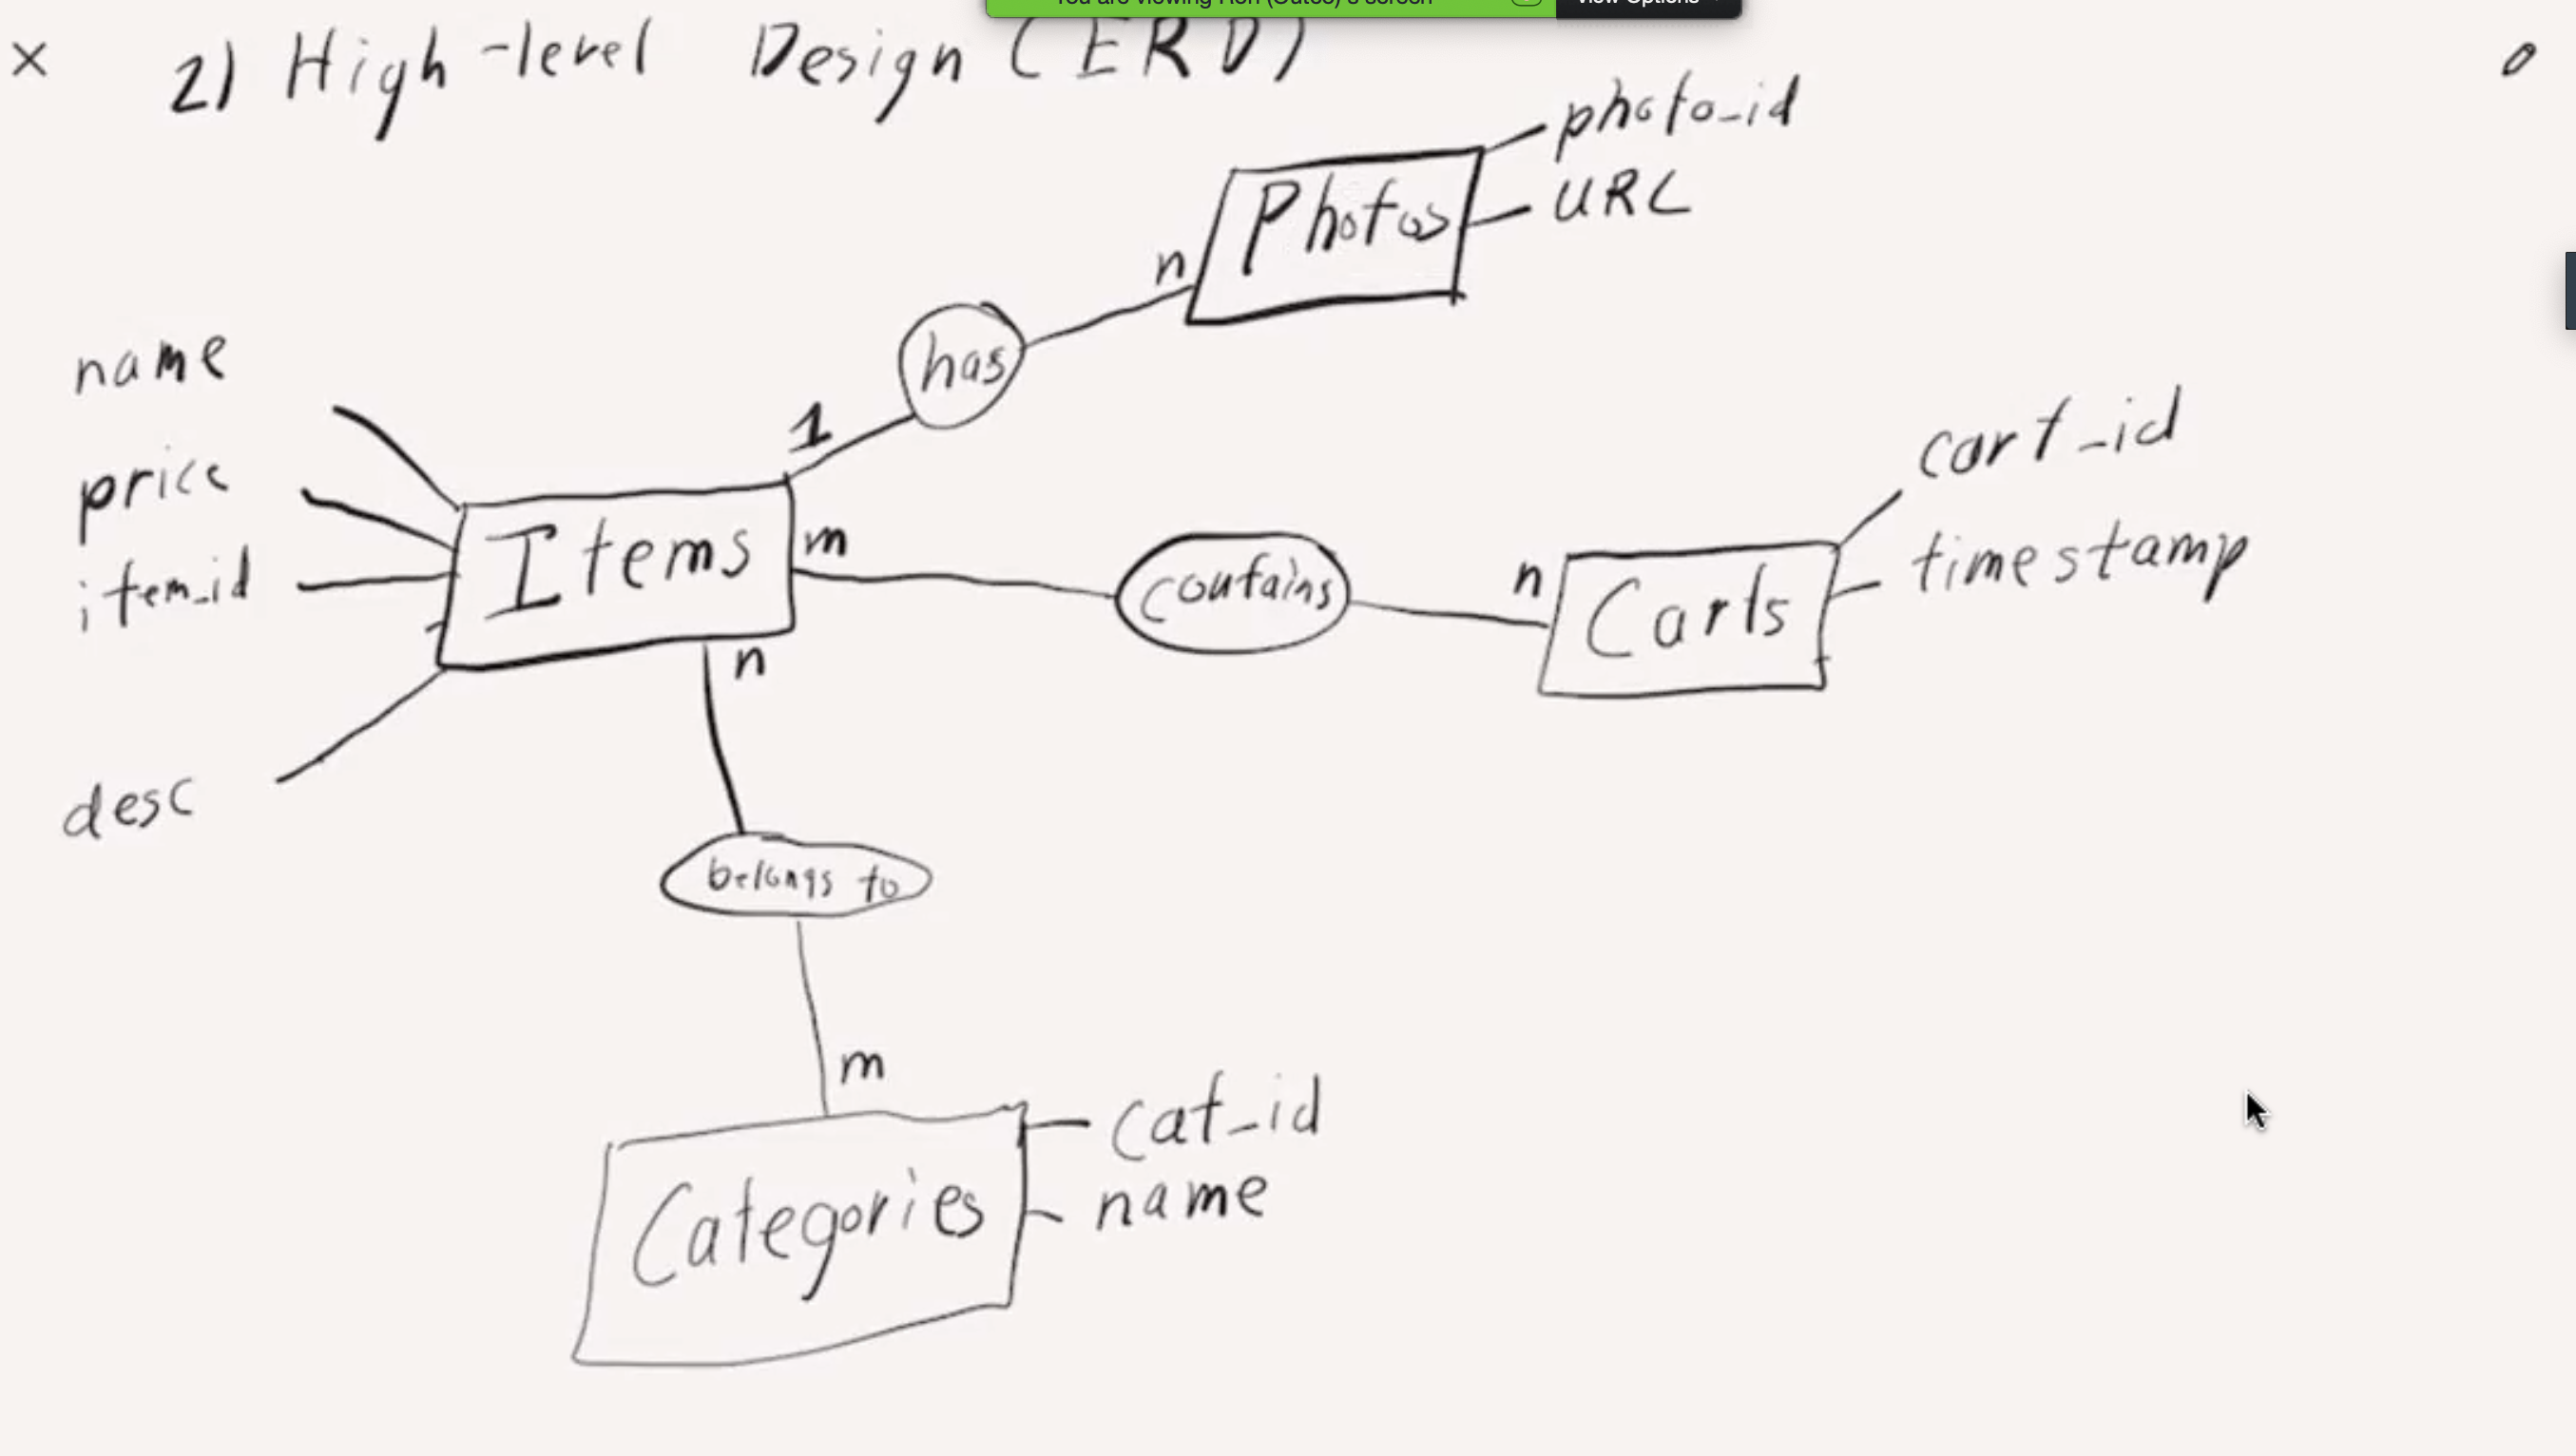 You are viewing Ron (Gutes)'s screen
View Options
2) High-level Design (ERD)
photo_id
URL
Photos
n
has
1
name
price
item_id
desc
Items
m
contains
n
Carts
cart_id
timestamp
n
belongs to
m
Categories
cat_id
name